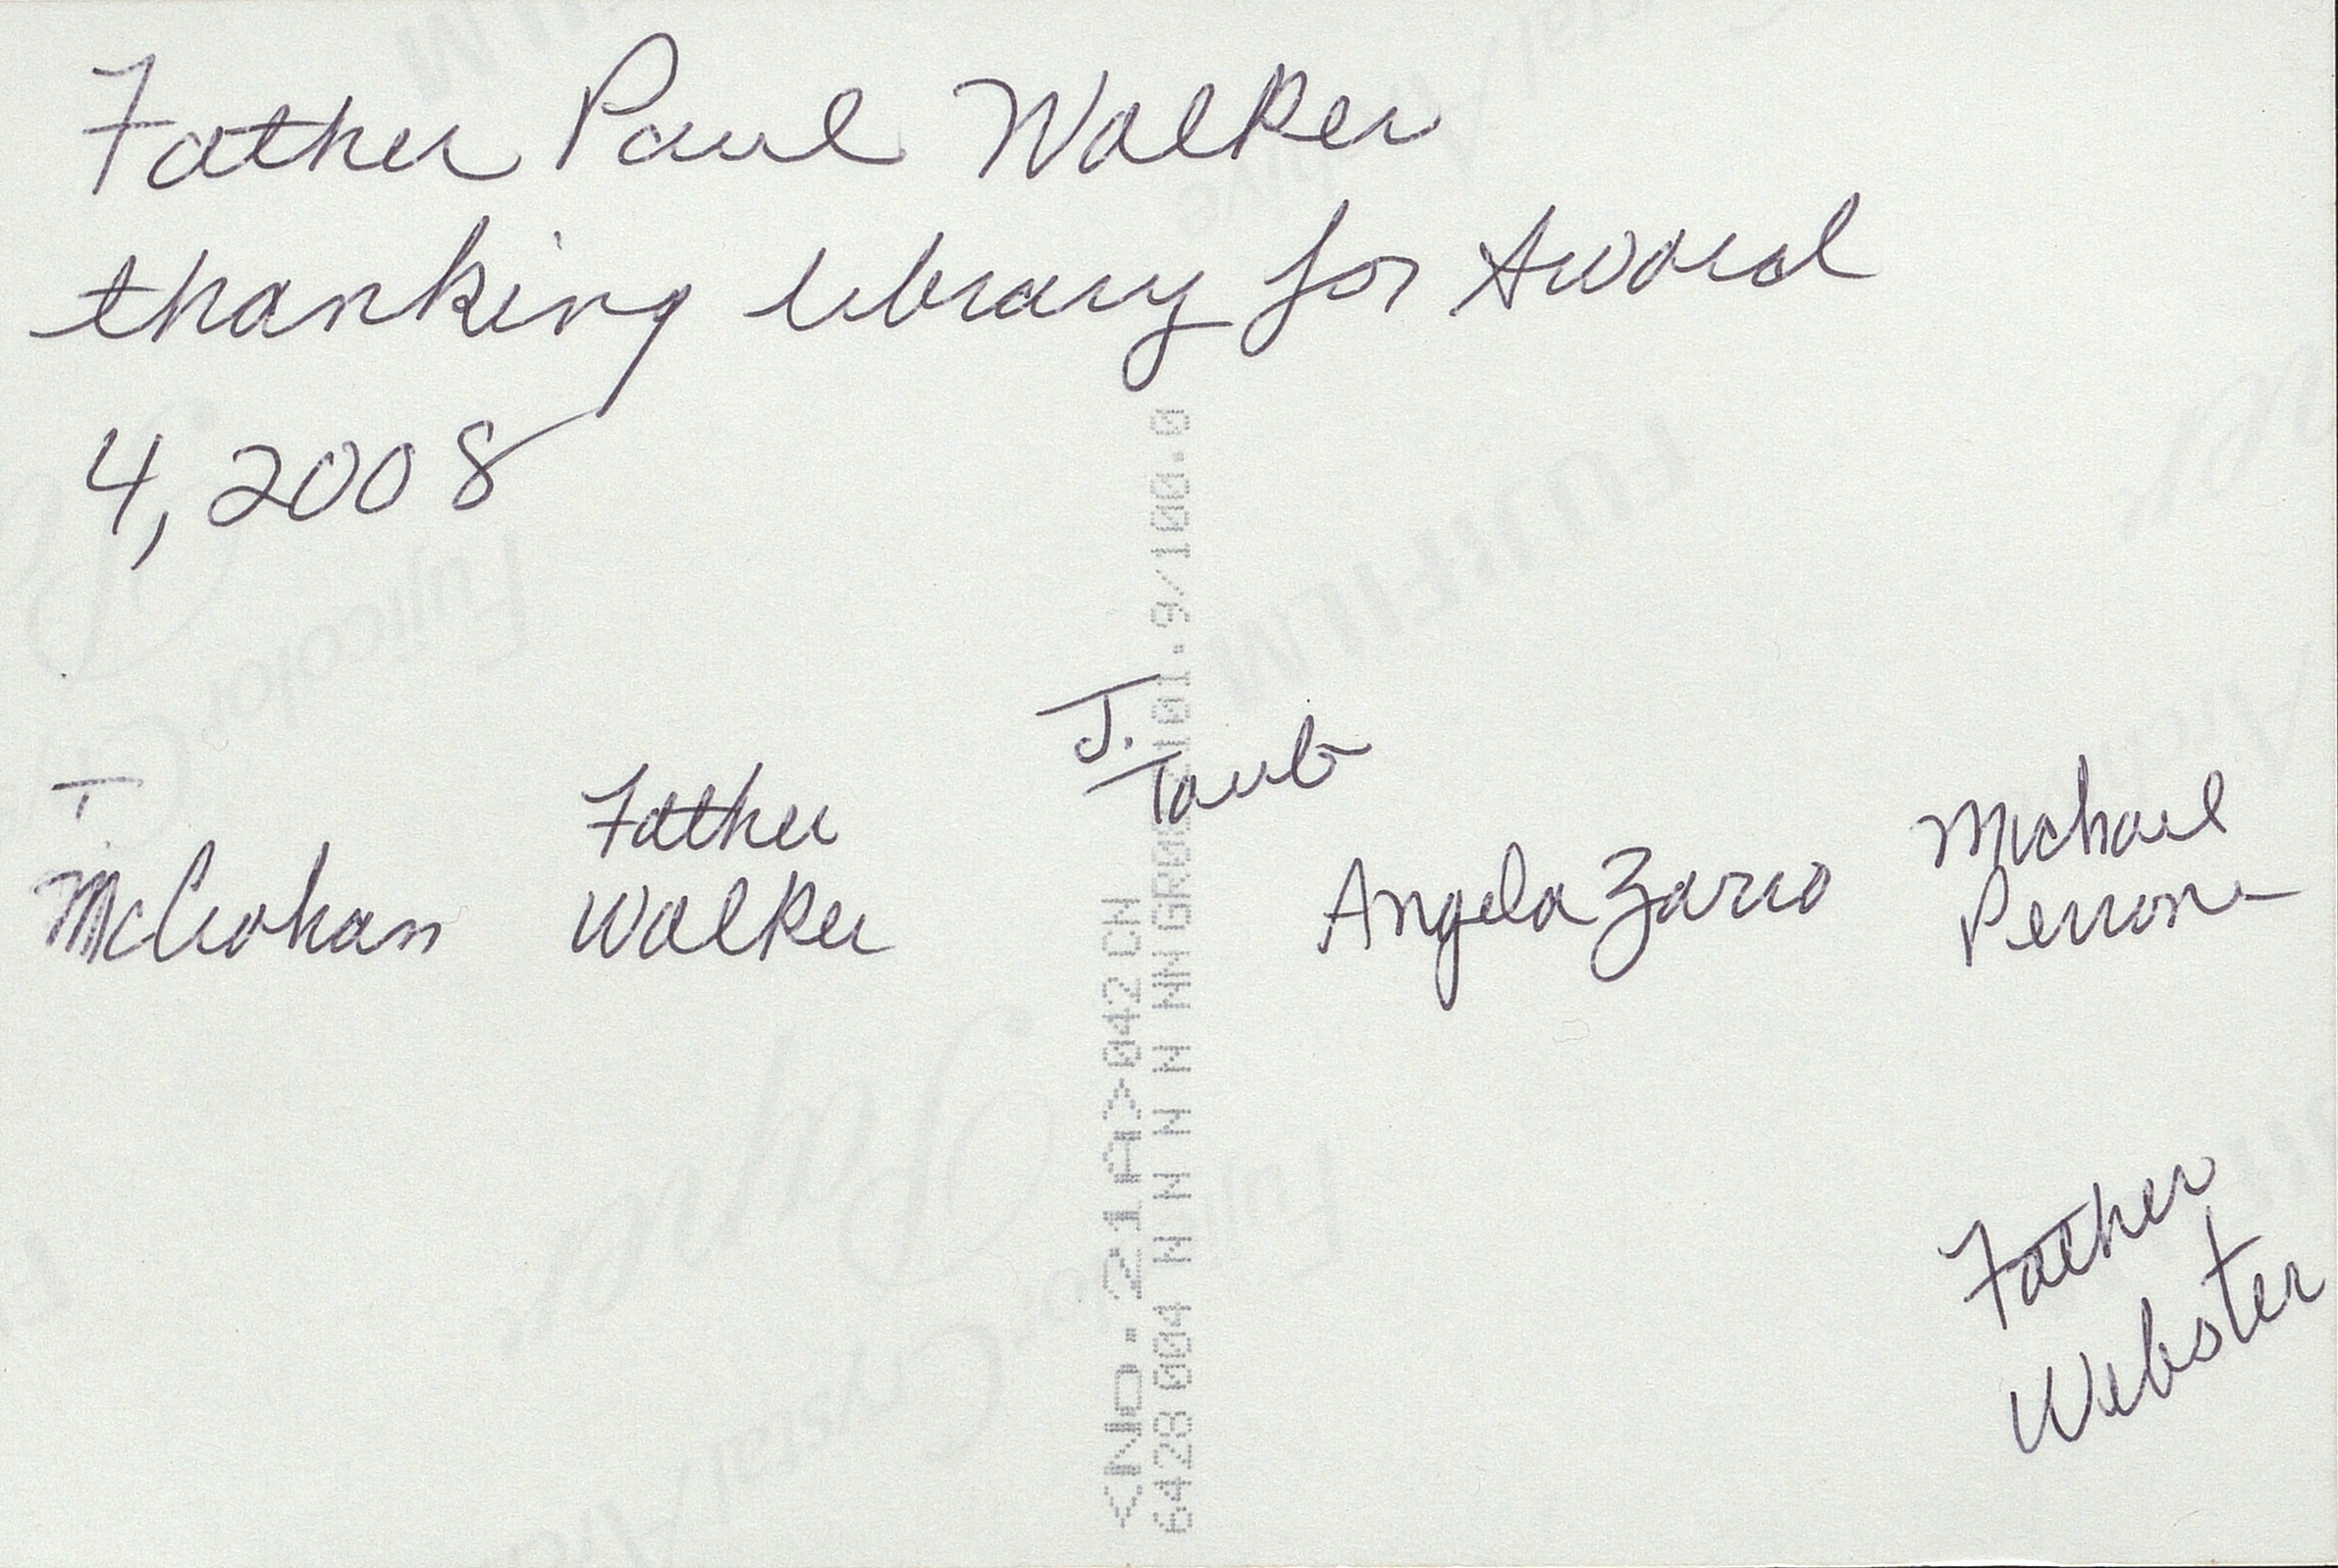 Father Paul Walker
thanking library for Award
4, 2008
J.
Taub
T
McCrohan
Father
Walker
Angela Zarro
Michael
Perrone
Father
Webster
<No. 21A>042 CN
FUJIFILM
Fujicolor Crystal
Archive